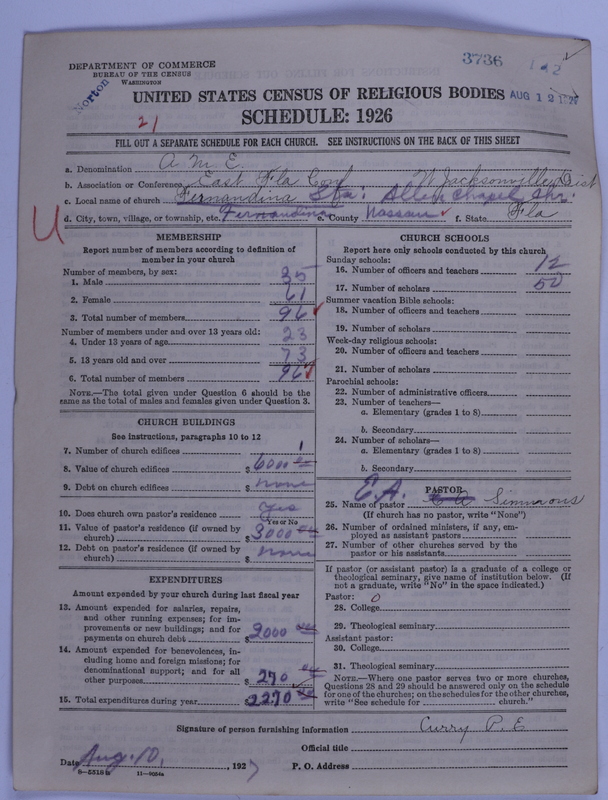 3736
DEPARTMENT OF COMMERCE
BUREAU OF THE CENSUS
WASHINGTON
Norton
UNITED STATES CENSUS OF RELIGIOUS BODIES
AUG 12 1927
SCHEDULE: 1926
21
FILL OUT A SEPARATE SCHEDULE FOR EACH CHURCH. SEE INSTRUCTIONS ON THE BACK OF THIS SHEET
a. Denomination A. M. E.
b. Association or Conference East Fla Conf N Jacksonville Dist
c. Local name of church Fernandina Sta: Allen Chapel Chr.
d. City, town, village, or township, etc. Fernandina e. County Nassau f. State Fla
U
MEMBERSHIP
Report number of members according to definition of member in your church
Number of members, by sex:
1. Male 35
2. Female 61
3. Total number of members 96
Number of members under and over 13 years old:
4. Under 13 years of age 23
5. 13 years old and over 73
6. Total number of members 96
NOTE.—The total given under Question 6 should be the same as the total of males and females given under Question 3.
CHURCH BUILDINGS
See instructions, paragraphs 10 to 12
7. Number of church edifices 1
8. Value of church edifices $ 6000 00
9. Debt on church edifices $ none
10. Does church own pastor's residence? yes
Yes or No
11. Value of pastor's residence (if owned by church) $ 3000 00
12. Debt on pastor's residence (if owned by church) $ none
EXPENDITURES
Amount expended by your church during last fiscal year
13. Amount expended for salaries, repairs, and other running expenses; for improvements or new buildings; and for payments on church debt $ 2000 00
14. Amount expended for benevolences, including home and foreign missions; for denominational support; and for all other purposes $ 270 00
15. Total expenditures during year $ 2270 00
CHURCH SCHOOLS
Report here only schools conducted by this church
Sunday schools:
16. Number of officers and teachers 12
17. Number of scholars 50
Summer vacation Bible schools:
18. Number of officers and teachers
19. Number of scholars
Week-day religious schools:
20. Number of officers and teachers
21. Number of scholars
Parochial schools:
22. Number of administrative officers
23. Number of teachers—
a. Elementary (grades 1 to 8)
b. Secondary
24. Number of scholars—
a. Elementary (grades 1 to 8)
b. Secondary
PASTOR
25. Name of pastor E.A. Simmons
(If church has no pastor, write "None")
26. Number of ordained ministers, if any, employed as assistant pastors
27. Number of other churches served by the pastor or his assistants
If pastor (or assistant pastor) is a graduate of a college or theological seminary, give name of institution below. (If not a graduate, write "No" in the space indicated.)
Pastor:
28. College
29. Theological seminary
Assistant pastor:
30. College
31. Theological seminary
NOTE.—Where one pastor serves two or more churches, Questions 28 and 29 should be answered only on the schedule for one of the churches; on the schedules for the other churches, write "See schedule for church."
Signature of person furnishing information Curry P. E
Official title
Date Aug. 10, 1927 P. O. Address